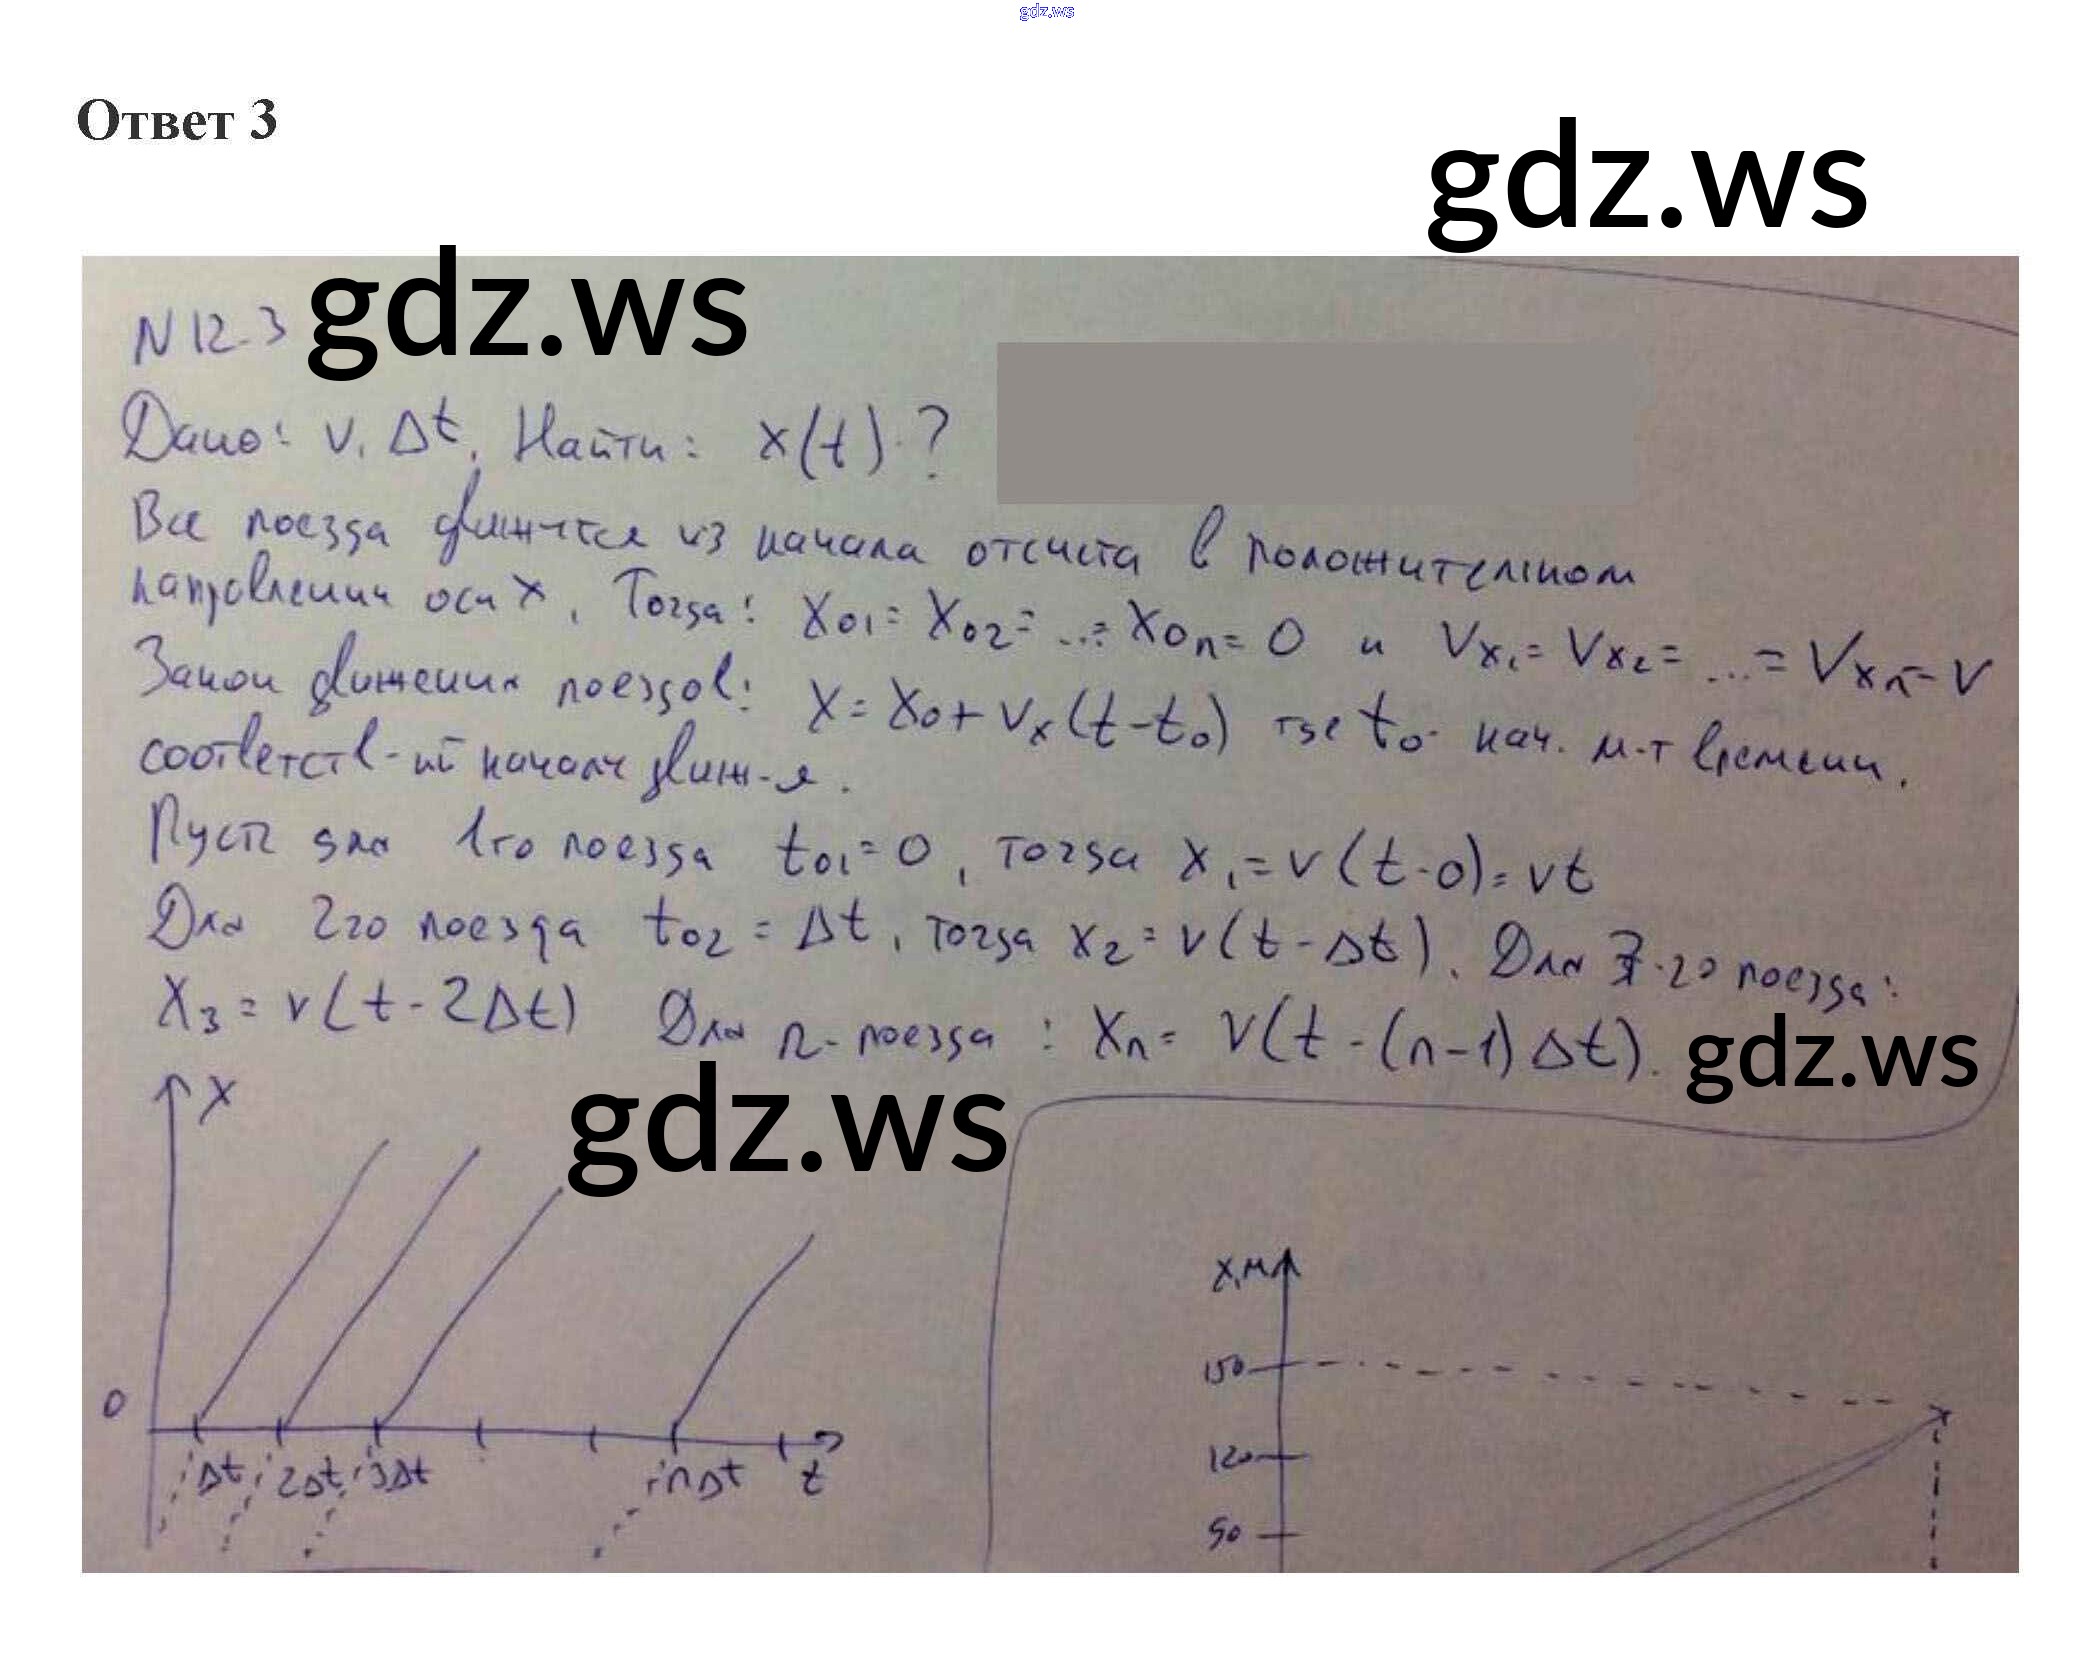 gdz.ws
Ответ 3
gdz.ws
gdz.ws
N 12.3
Дано: v, Δt. Найти: x(t)-?
Все поезда движутся из начала отсчета в положительном
направлении оси x. Тогда: X01 = X02 = ... = X0n = 0 и Vx1 = Vx2 = ... = Vxn = V
Закон движения поездов: X = X0 + Vx(t-t0) где t0- нач. м-т времени.
соответств-ий началу движ-я.
Пусть для 1го поезда t01 = 0, тогда x1 = v(t-0) = vt
Для 2го поезда t02 = Δt, тогда x2 = v(t-Δt). Для 3-го поезда:
X3 = v(t-2Δt) Для n-поезда: Xn = V(t-(n-1)Δt).
gdz.ws
gdz.ws
X
0
Δt 2Δt 3Δt nΔt t
x,м
150
120
90